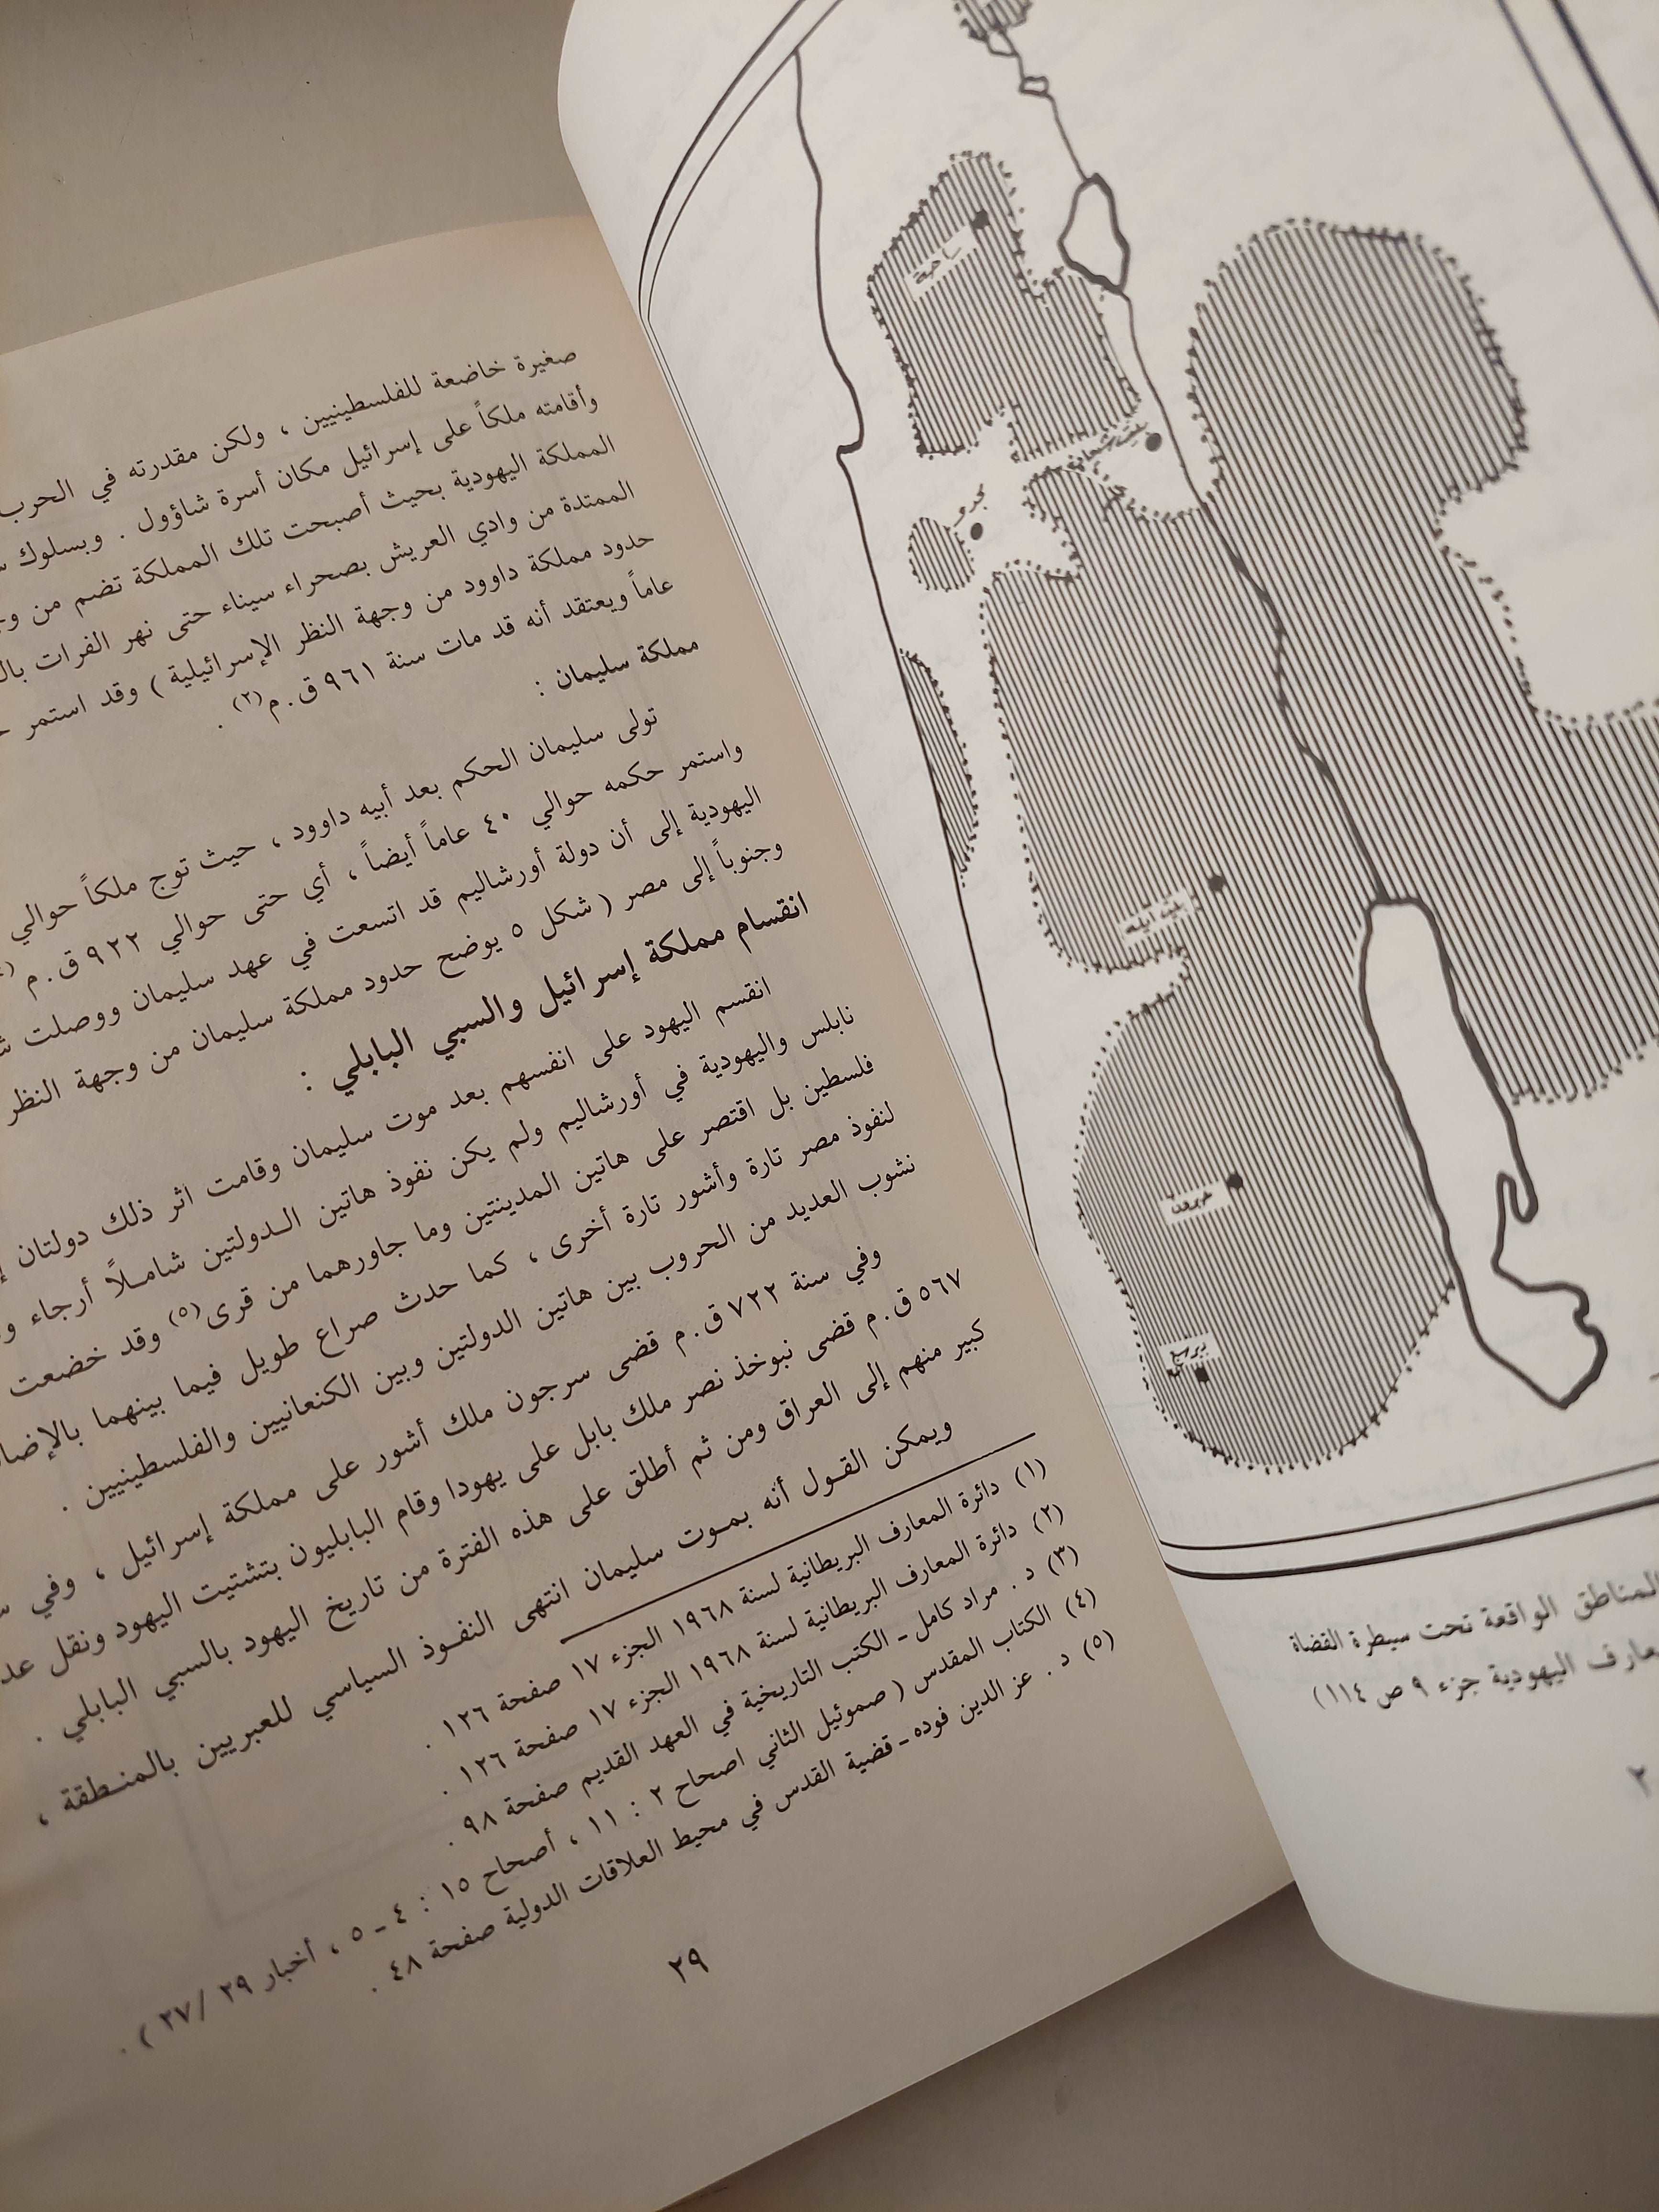 حاصة
مجدو
حبرون
بئر سبع
المناطق الواقعة تحت سيطرة القضاة
اليهودية جزء ٩ ص ١١٤)
صغيرة خاضعة للفلسطينيين ، ولكن مقدرته في الحرب
وأقامته ملكاً على إسرائيل مكان أسرة شاؤول . وبسلوك
المملكة اليهودية بحيث أصبحت تلك المملكة تضم من
الممتدة من وادي العريش بصحراء سيناء حتى نهر الفرات
حدود مملكة داوود من وجهة النظر الإسرائيلية ) وقد استمر
عاماً ويعتقد أنه قد مات سنة ٩٦١ ق.م(٢) .
مملكة سليمان :
تولى سليمان الحكم بعد أبيه داوود ، حيث توج ملكاً حوالي
واستمر حكمه حوالي ٤٠ عاماً أيضاً ، أي حتى حوالي ٩٢٢ ق.م
اليهودية إلى أن دولة أورشاليم قد اتسعت في عهد سليمان ووصلت
وجنوباً إلى مصر ( شكل ٥ يوضح حدود مملكة سليمان من وجهة النظر
انقسام مملكة إسرائيل والسبي البابلي :
انقسم اليهود على انفسهم بعد موت سليمان وقامت اثر ذلك دولتان
نابلس واليهودية في أورشاليم ولم يكن نفوذ هاتين الدولتين شاملاً أرجاء
فلسطين بل اقتصر على هاتين المدينتين وما جاورهما من قرى(٥) وقد خضعت
لنفوذ مصر تارة وأشور تارة أخرى ، كما حدث صراع طويل فيما بينهما
نشوب العديد من الحروب بين هاتين الدولتين وبين الكنعانيين والفلسطينيين .
وفي سنة ٧٢٢ ق.م قضى سرجون ملك أشور على مملكة إسرائيل ، وفي
٥٦٧ ق.م قضى نبوخذ نصر ملك بابل على يهودا وقام البابليون بتشتيت اليهود ونقل
كبير منهم إلى العراق ومن ثم أطلق على هذه الفترة من تاريخ اليهود بالسبي البابلي .
ويمكن القول أنه بموت سليمان انتهى النفوذ السياسي للعبريين بالمنطقة ،
(١) دائرة المعارف البريطانية لسنة ١٩٦٨ الجزء ١٧ صفحة ١٢٦ .
(٢) دائرة المعارف البريطانية لسنة ١٩٦٨ الجزء ١٧ صفحة ١٢٦ .
(٣) د . مراد كامل - الكتب التاريخية في العهد القديم صفحة ٩٨ .
(٤) الكتاب المقدس ( صموئيل الثاني اصحاح ٢ : ١١ ، أصحاح ١٥ : ٤ - ٥ ، أخبار ٢٩ / ٢٧ ) .
(٥) د . عز الدين فوده - قضية القدس في محيط العلاقات الدولية صفحة ٤٨ .
٢٩